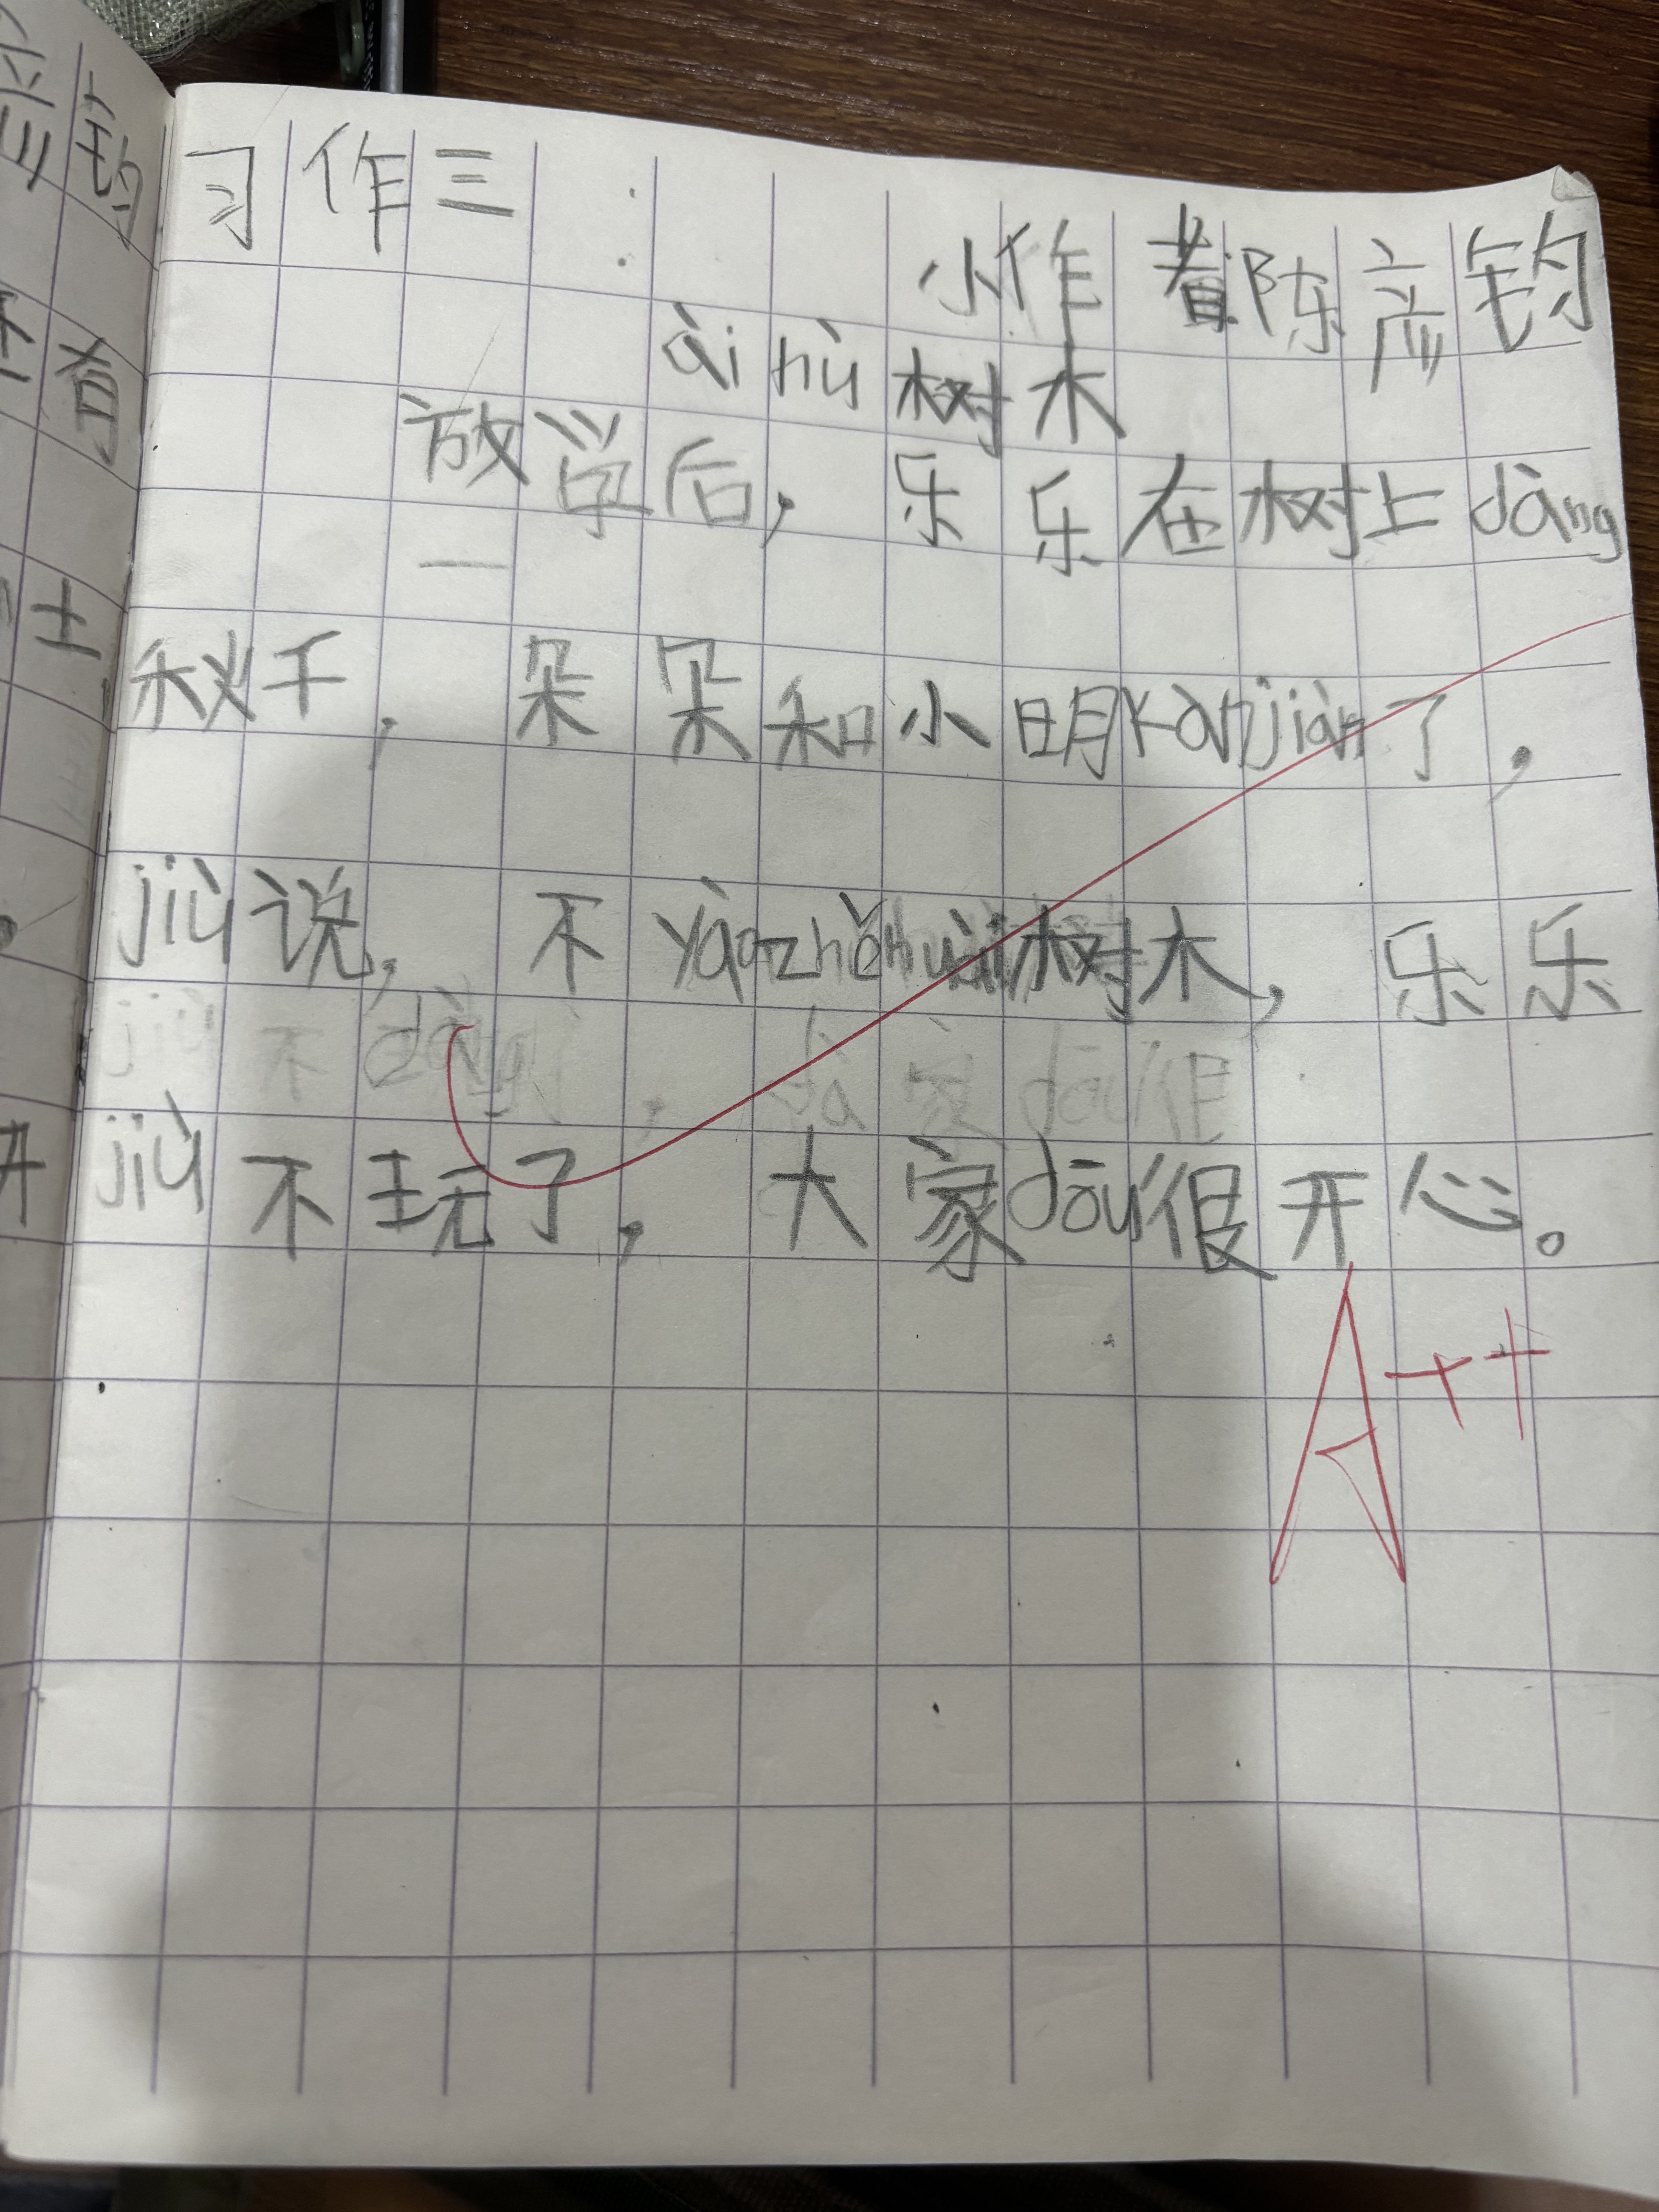 习作三
小作者陈彦钧
ài hù 树木
放学后，乐乐在树上dàng
秋千，朵朵和小明kànjiàn了，
jiù说，不yào zhé huài树木，乐乐
jiù不玩了，大家dōu很开心。
A++
有
土
开